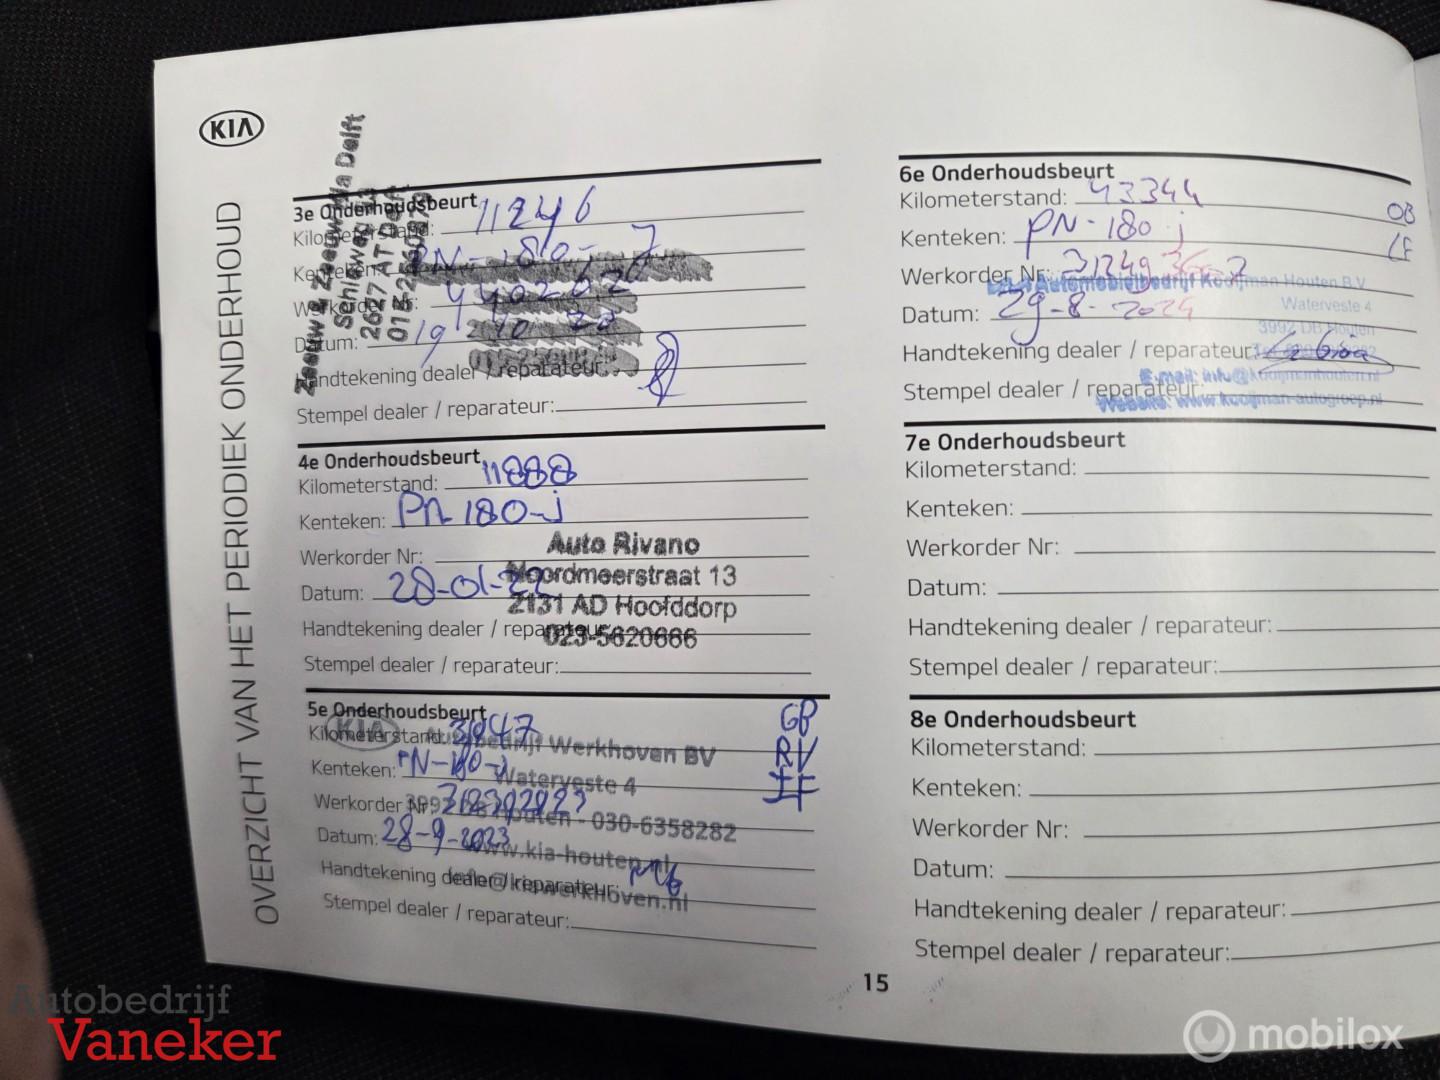 KIA
OVERZICHT VAN HET PERIODIEK ONDERHOUD
3e Onderhoudsbeurt
Kilometerstand: 11246
Kenteken: PN-180-J
Werkorder Nr:
Datum: 19
Handtekening dealer / reparateur:
Stempel dealer / reparateur:
Zeeuw & Zeeuw Kia Delft
Schieweg
2627 AT Delft
4e Onderhoudsbeurt
Kilometerstand: 11888
Kenteken: PN-180-J
Werkorder Nr:
Datum: 28-01-22
Handtekening dealer / reparateur:
Stempel dealer / reparateur:
Auto Rivano
Noordmeerstraat 13
2131 AD Hoofddorp
023-5620666
5e Onderhoudsbeurt
Kilometerstand:
Kenteken: PN-180-J
Werkorder Nr:
Datum: 28-9-2023
Handtekening dealer / reparateur:
Stempel dealer / reparateur:
GB
RV
KIA Autobedrijf Werkhoven BV
Waterveste 4
3992 DB Houten - 030-6358282
www.kia-houten.nl
info@kiawerkhoven.nl
6e Onderhoudsbeurt
Kilometerstand: 43344
Kenteken: PN-180-j
Werkorder Nr:
Datum: 29-8-2024
Handtekening dealer / reparateur:
Stempel dealer / reparateur:
OB
LF
Automobielbedrijf Kooijman Houten B.V.
Waterveste 4
3992 DB Houten
E-mail: info@kooijmanhouten.nl
Website: www.kooijman-autogroep.nl
7e Onderhoudsbeurt
Kilometerstand:
Kenteken:
Werkorder Nr:
Datum:
Handtekening dealer / reparateur:
Stempel dealer / reparateur:
8e Onderhoudsbeurt
Kilometerstand:
Kenteken:
Werkorder Nr:
Datum:
Handtekening dealer / reparateur:
Stempel dealer / reparateur:
15
Autobedrijf
Vaneker
mobilox